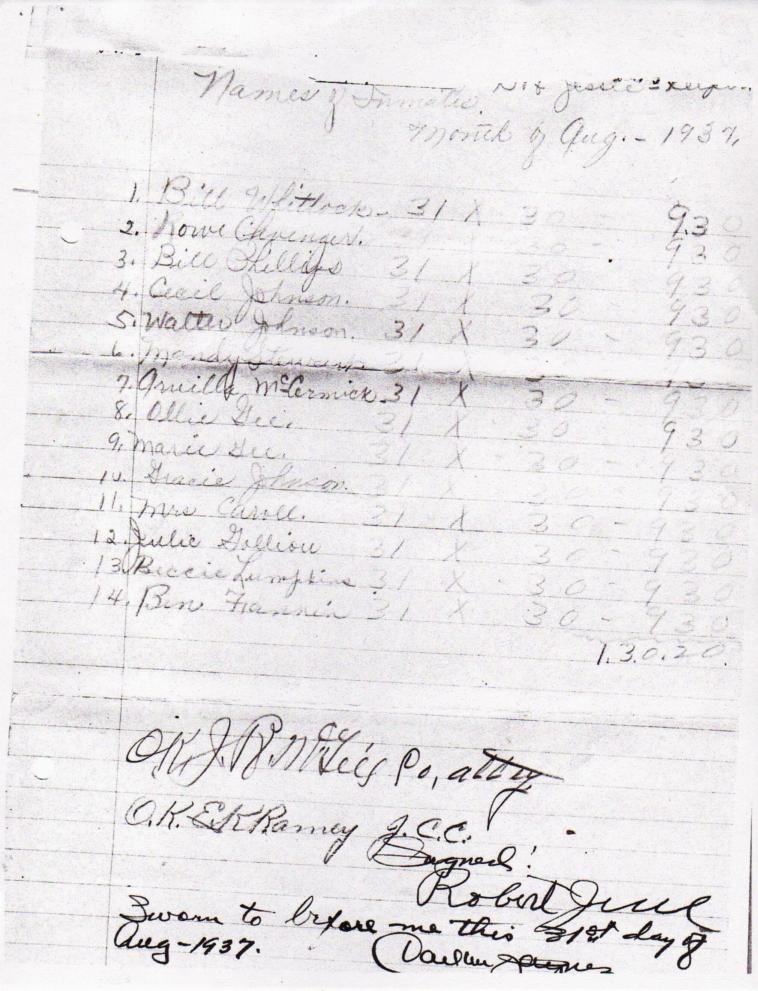 Names of Inmates.
Month of Aug. - 1937,
1. Bill Whitlock - 31 X 30 9.30
2. Rowe 30 - 930
3. Bill Phillips 31 X 30 930
4. Cecil Johnson. 31 X 30 930
5. Walter Johnson. 31 X 30 - 930
6. Mandy 31 X
7. McCormick 31 X 30 - 930
8. Ollie Gee. 31 X 30 930
9. Marie Gee. 31 X 30 - 930
10. Gracie Johnson. 31 X 30 930
11. Mrs Caroll. 31 X 30 - 930
12. Julie 31 X 30 - 930
13. Beccie Lumpkins 31 X 30 - 930
14. Ben Fannin 31 X 30 - 930
1.3.0.20.
O.K. J. R. Co, atty
O.K. E K Ramey J.C.C.
Signed!
Robert
Sworn to before me this 31st day of
Aug - 1937.